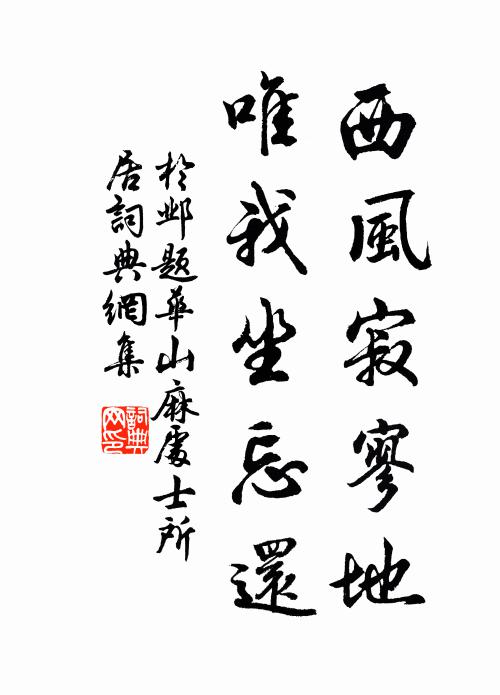 西風寂寥地
唯我坐忘還
於邺題華山麻處士所
居詞典網集
詞典网印